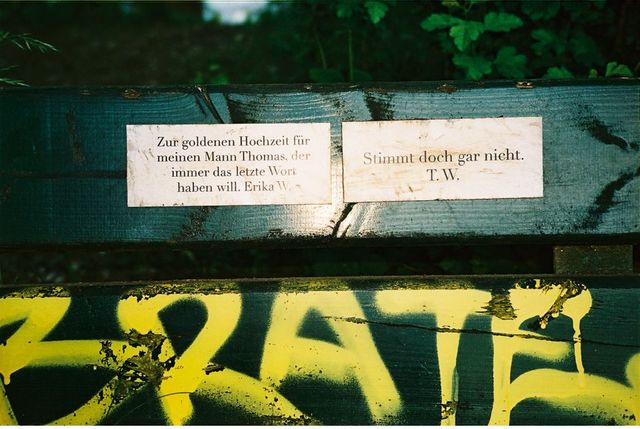 Zur goldenen Hochzeit für
meinen Mann Thomas, der
immer das letzte Wort
haben will. Erika W.
Stimmt doch gar nicht.
T. W.